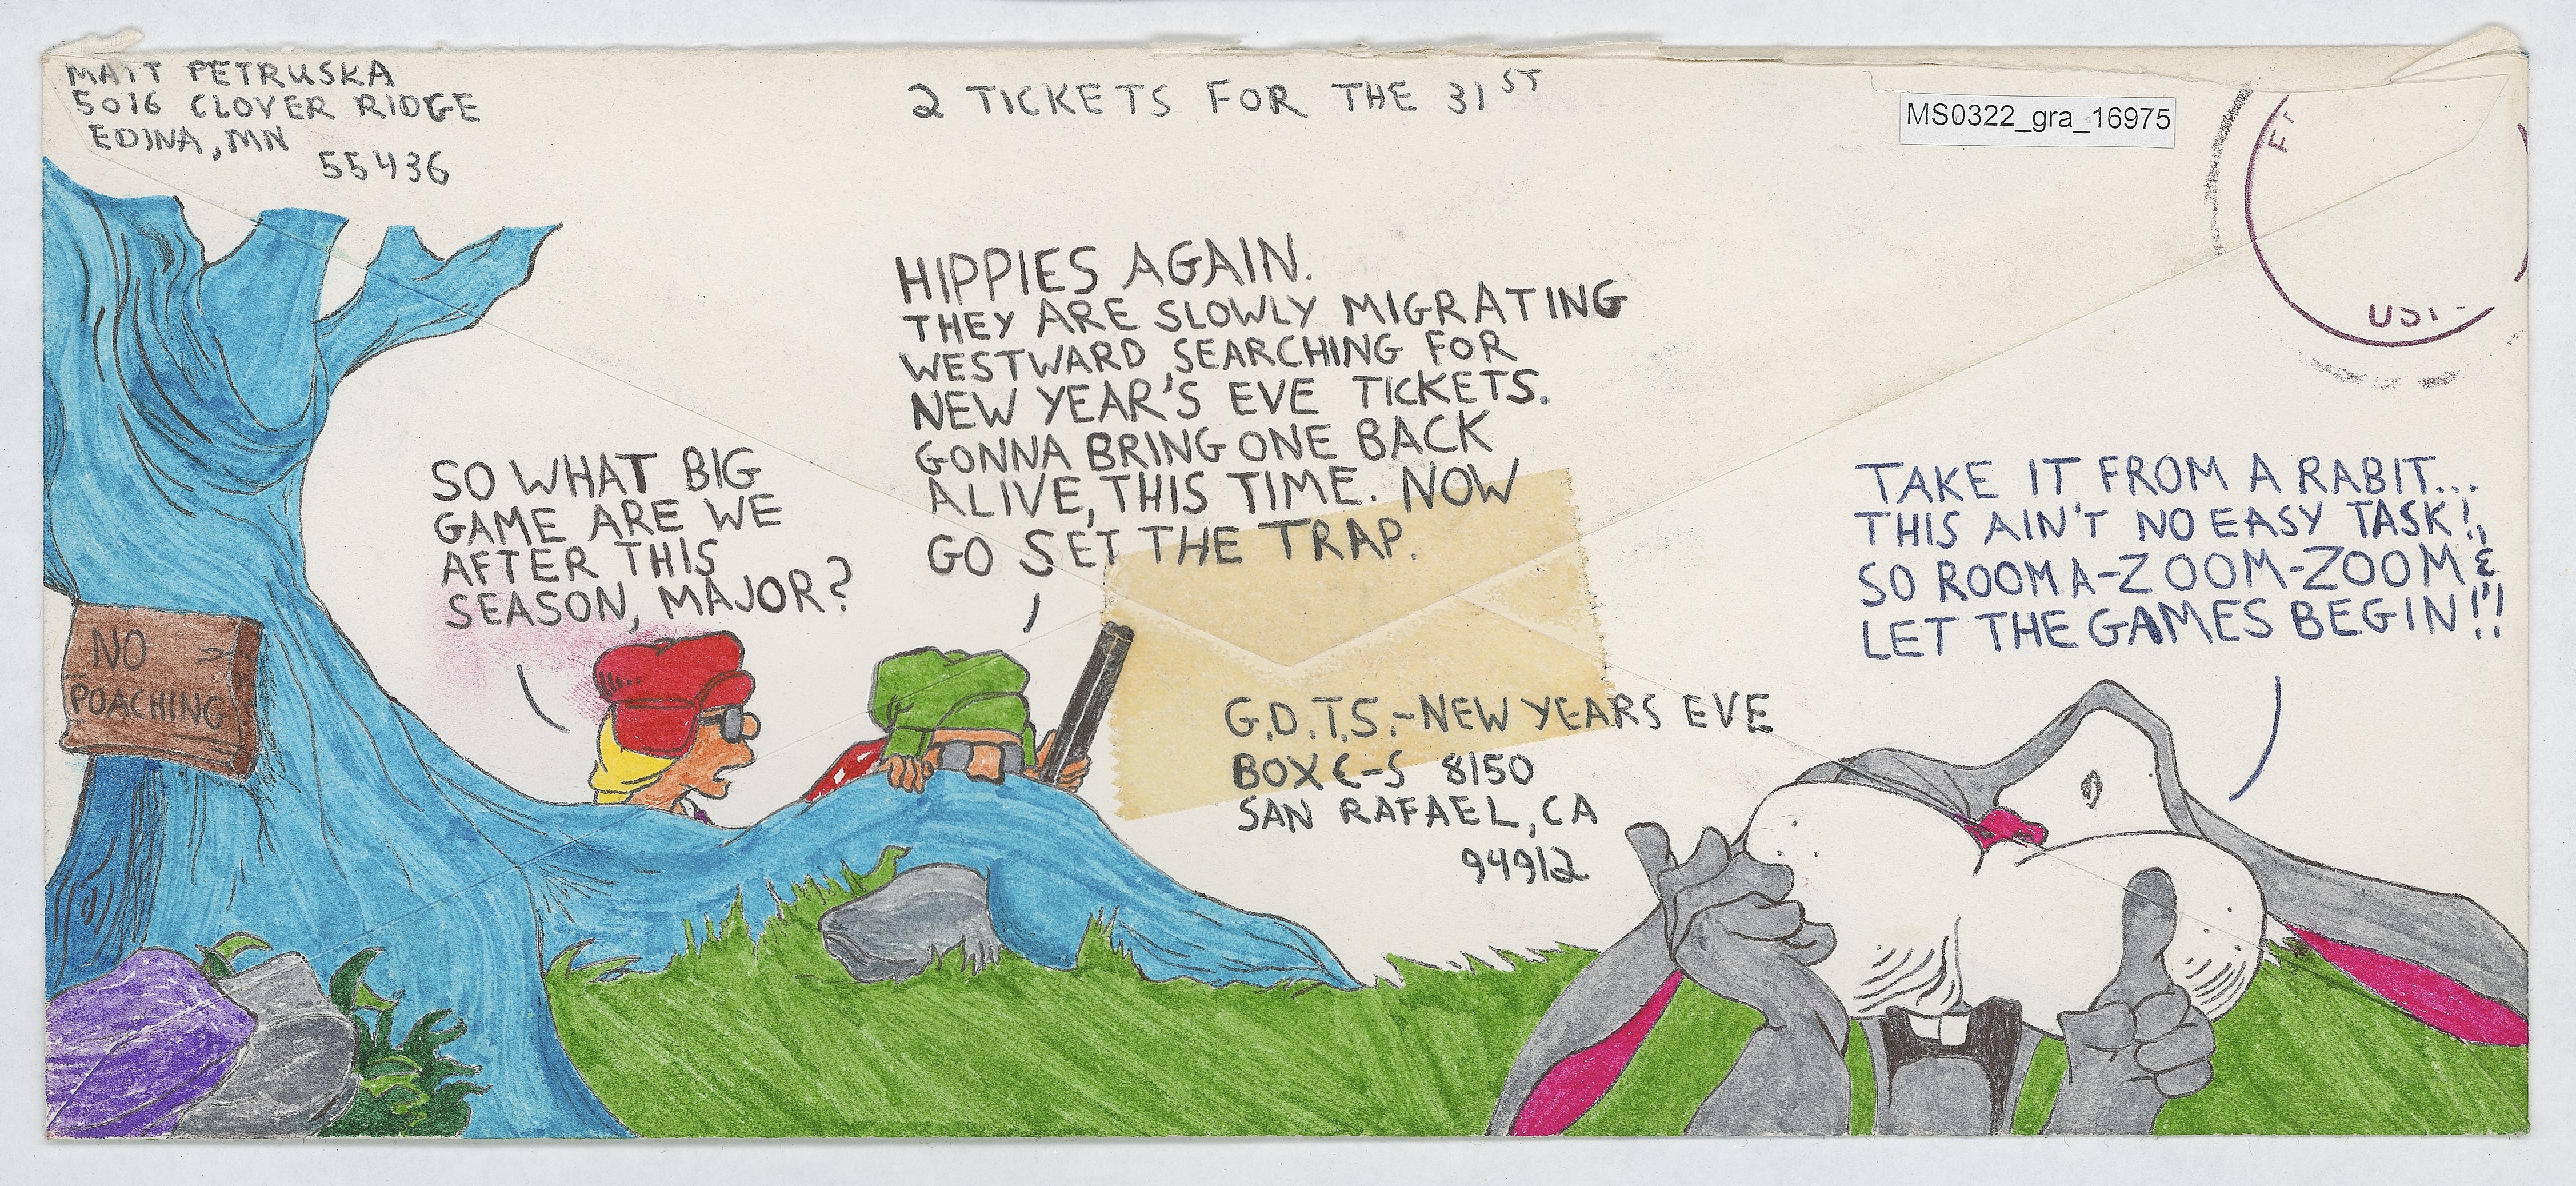 MATT PETRUSKA
5016 CLOVER RIDGE
EDINA, MN
55436
2 TICKETS FOR THE 31ST
MS0322_gra_16975
HIPPIES AGAIN.
THEY ARE SLOWLY MIGRATING
WESTWARD, SEARCHING FOR
NEW YEAR'S EVE TICKETS.
GONNA BRING ONE BACK
ALIVE, THIS TIME. NOW
GO SET THE TRAP.
SO WHAT BIG
GAME ARE WE
AFTER THIS
SEASON, MAJOR?
TAKE IT FROM A RABIT...
THIS AIN'T NO EASY TASK!,
SO ROOM A-ZOOM-ZOOM &
LET THE GAMES BEGIN!!!
NO
POACHING
G.D.T.S.-NEW YEARS EVE
BOX C-S 8150
SAN RAFAEL, CA
94912